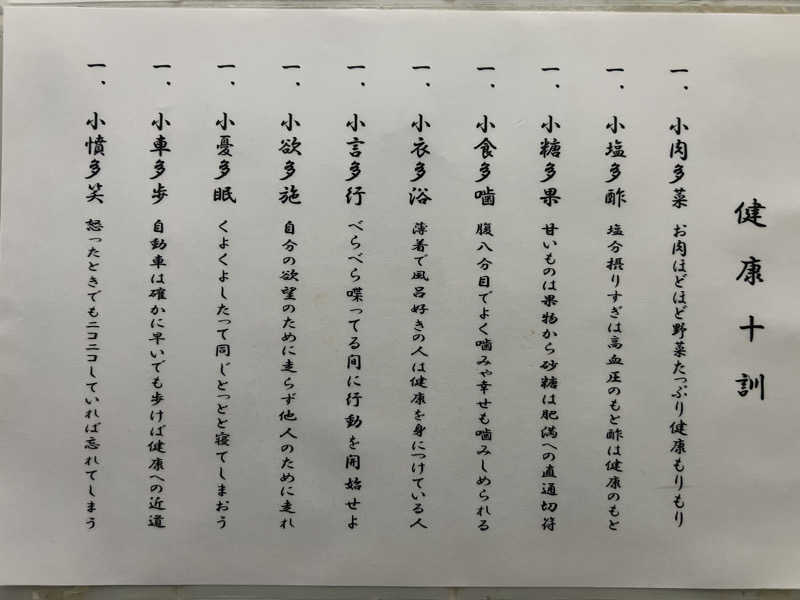 健康十訓
一、小肉多菜 お肉ほどほど野菜たっぷり健康もりもり
一、小塩多酢 塩分摂りすぎは高血圧のもと酢は健康のもと
一、小糖多果 甘いものは果物から砂糖は肥満への直通切符
一、小食多噛 腹八分目でよく噛みや幸せも噛みしめられる
一、小衣多浴 薄着で風呂好きの人は健康を身につけている人
一、小言多行 べらべら喋ってる間に行動を開始せよ
一、小欲多施 自分の欲望のために走らず他人のために走れ
一、小憂多眠 くよくよしたって同じとっとと寝てしまおう
一、小車多歩 自動車は確かに早いでも歩けば健康への近道
一、小憤多笑 怒ったときでもニコニコしていれば忘れてしまう